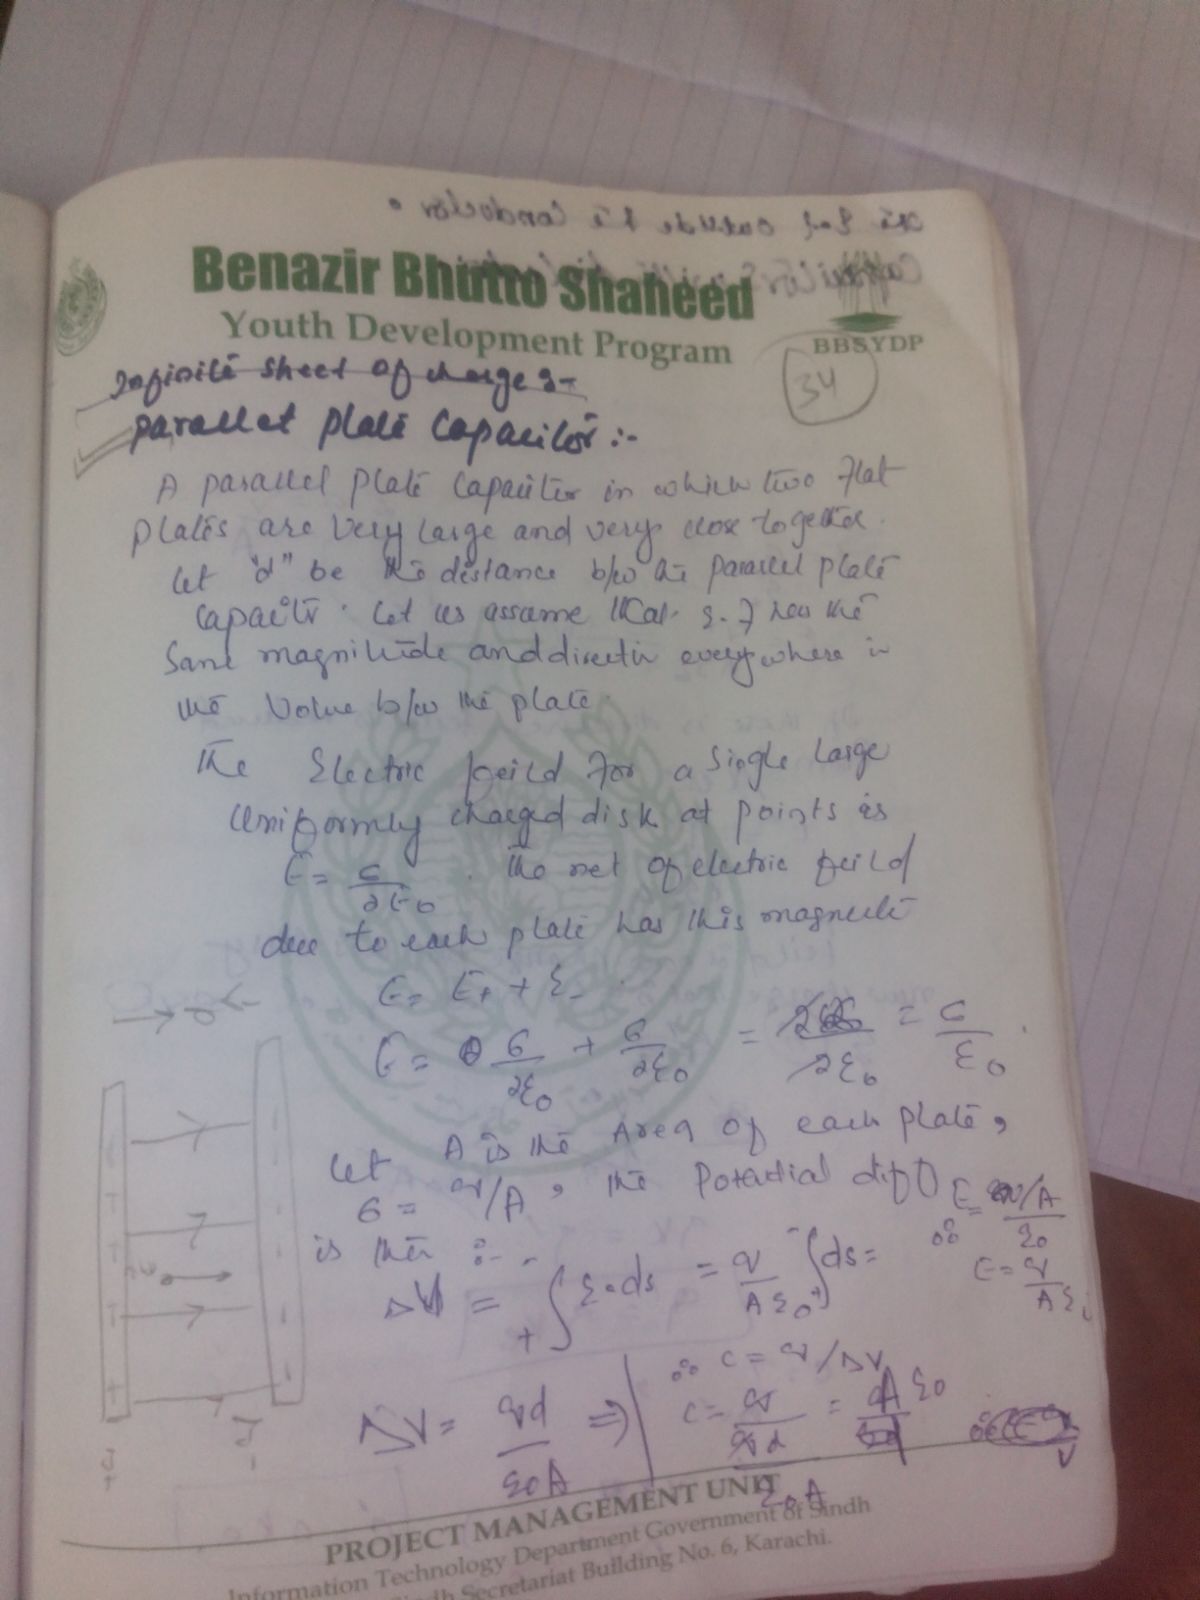 Benazir Bhutto Shaheed
Youth Development Program
BBSYDP
34
Infinite sheet of charge :-
parallel plate Capacitor :-
A parallel plate Capacitor in which two flat
plates are very large and very close together.
let "d" be the distance b/w the parallel plate
Let us assume that E.F has the
Same magnitude and direction everywhere in
the volume b/w the plate.
The Electric feild for a single large
uniformly charged disk at points is
E = σ/2ε0 . The net of electric feild
due to each plate has this magnitude
E = E+ + E-
E = σ/2ε0 + σ/2ε0 = 2σ/2ε0 = σ/ε0 .
let A is the Area of each plate,
σ = q/A , the Potential diff E = q/A/ε0
is then :- ∴ E = q/Aε0
ΔV = +∫ E.ds = q/Aε0 ∫ds =
∴ C = q/ΔV
ΔV = qd/ε0A ⇒ C = q/qd/ε0A = Aε0/d
PROJECT MANAGEMENT UNIT
Information Technology Department Government of Sindh
Sindh Secretariat Building No. 6, Karachi.